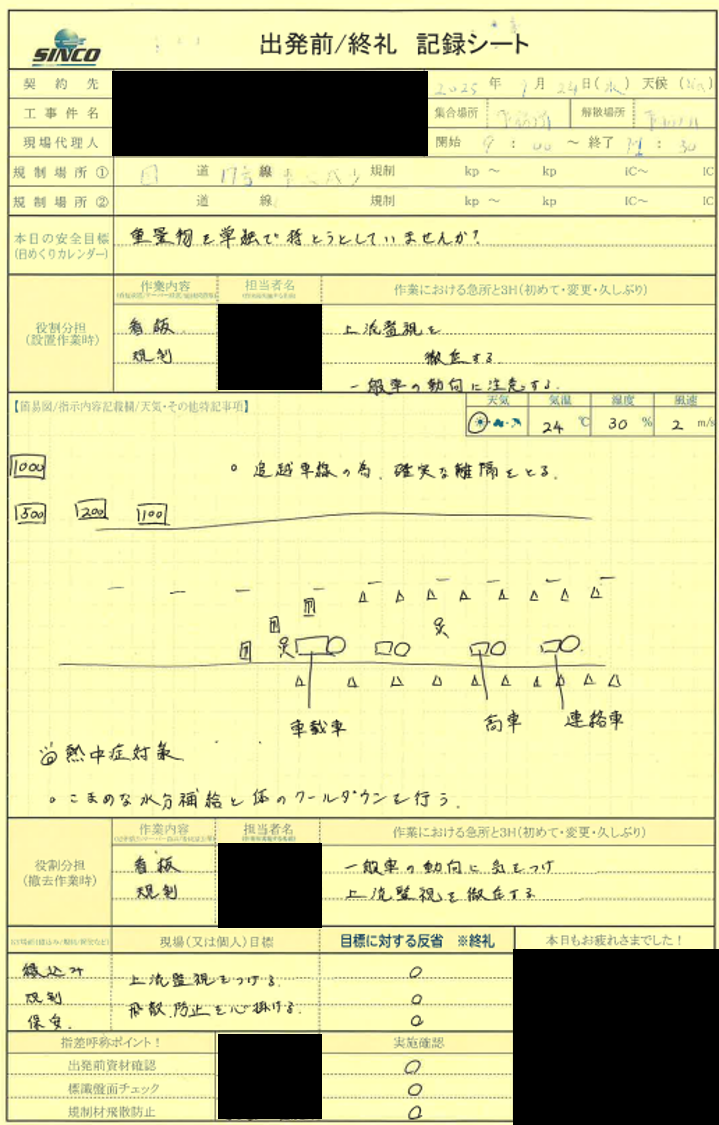 SINCO
出発前/終礼 記録シート
契約先 2025年 月24日(水) 天候( )
工事件名 集合場所 解散場所
現場代理人 開始 9:00 ～ 終了 :30
規制場所① 国道17号線 規制 kp ～ kp IC～ IC
規制場所② 道 線 規制 kp ～ kp IC～ IC
本日の安全目標 重量物を単独で持とうとしていませんか?
(日めくりカレンダー)
作業内容 担当者名 作業における急所と3H(初めて・変更・久しぶり)
役割分担
(設置作業時)
看板 上流監視を
規制 徹底する
一般車の動向に注意する.
【簡易図/指示内容記載欄/天気・その他特記事項】
天気 気温 湿度 風速
24℃ 30% 2m/s
1000
○ 追越車線の為、確実な離隔をとる.
500 200 100
車載車 高車 連絡車
熱中症対策
○ こまめな水分補給と体のクールダウンを行う.
作業内容 担当者名 作業における急所と3H(初めて・変更・久しぶり)
役割分担
(撤去作業時)
看板 一般車の動向に気をつけ
規制 上流監視を徹底する
現場(又は個人)目標 目標に対する反省 ※終礼 本日もお疲れさまでした!
積込み 上流監視をつける. ○
規制 飛散防止を心掛ける. ○
保安. ○
指差呼称ポイント! 実施確認
出発前資材確認 ○
標識盤面チェック ○
規制材飛散防止 ○